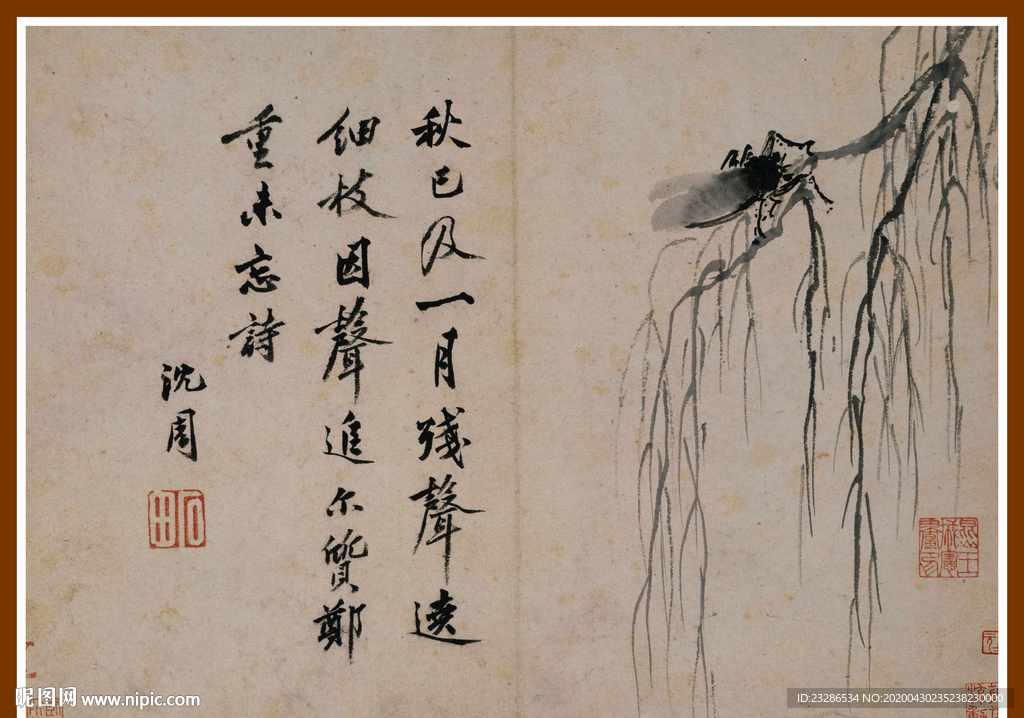 秋已及一月殘聲遶
細枝因聲進尔質鄭
重未忘詩
沈周
石田
昵图网 www.nipic.com
ID:23286534 NO:20200430235238230000